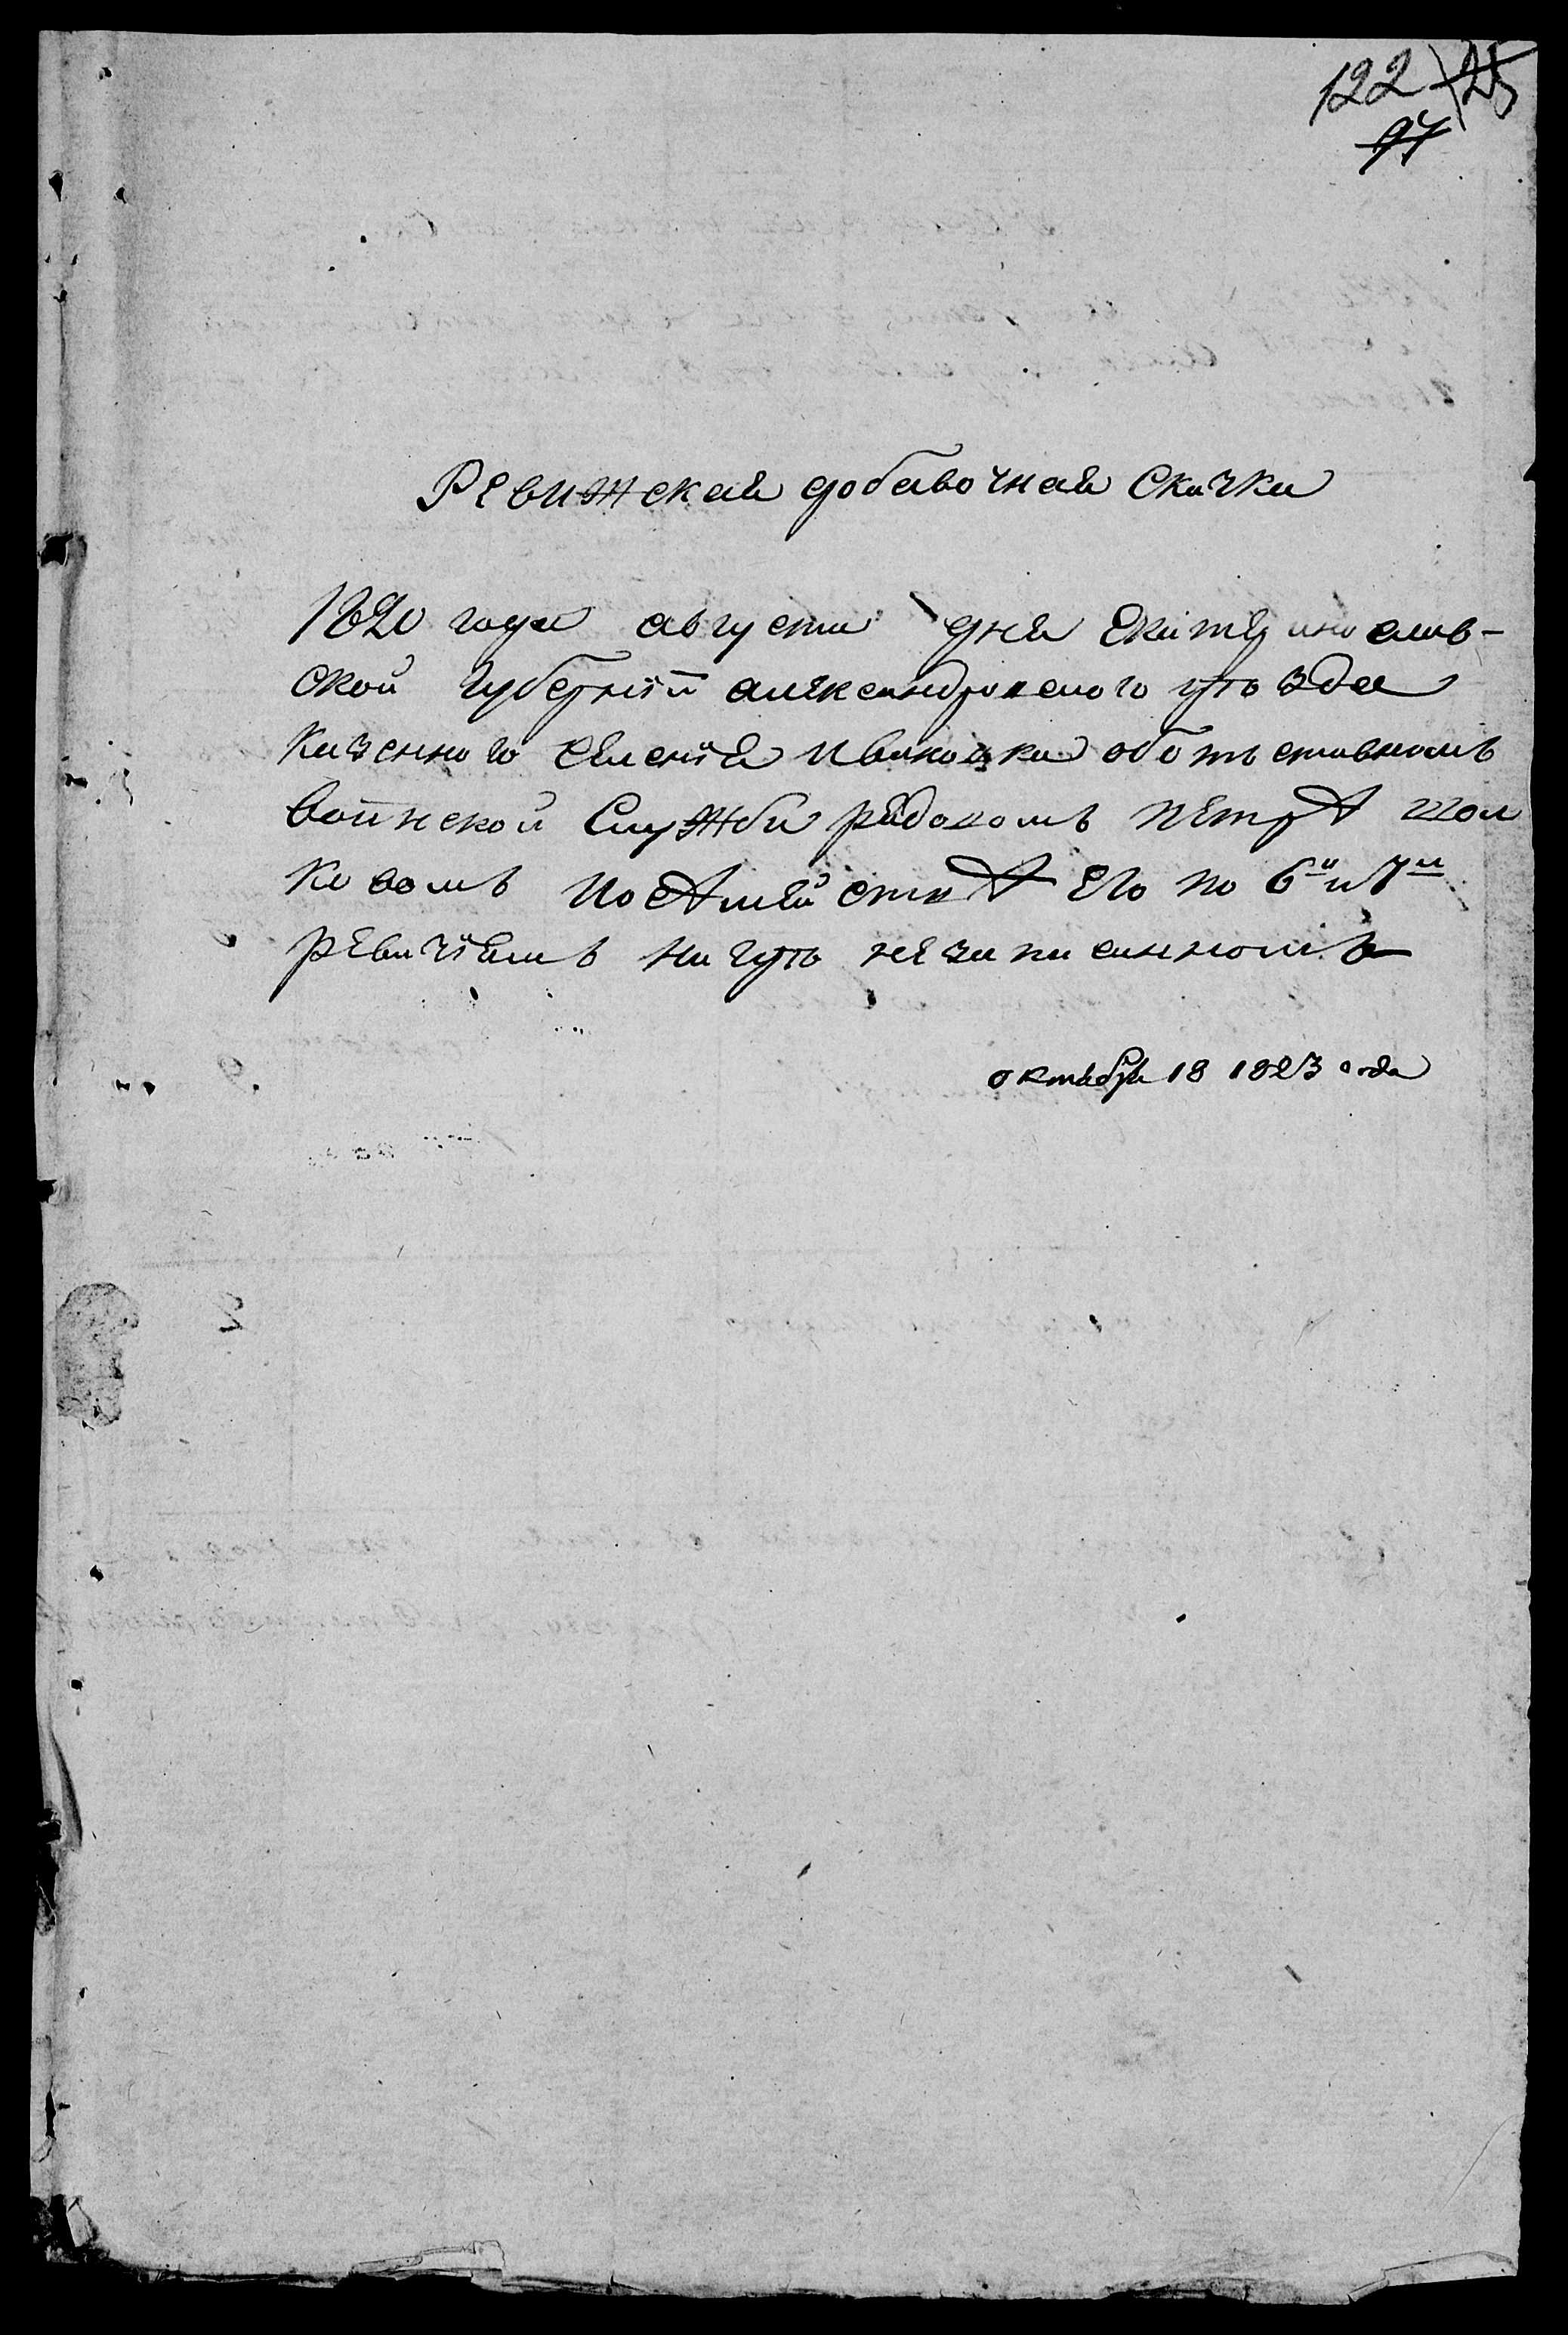 122 125
97
Ревижская добавочная Скачка
1820 года августа дня Екатеринослав-
ской губернїи александровского уѣзда
Казенного селенїя Ивановки оботъставномъ
воинской Службы рядовомъ петрѣ
исѣмействѣ Его по 6й и 7й
ревизїямъ нигдѣ незаписанномъ
октября 18 1823 года